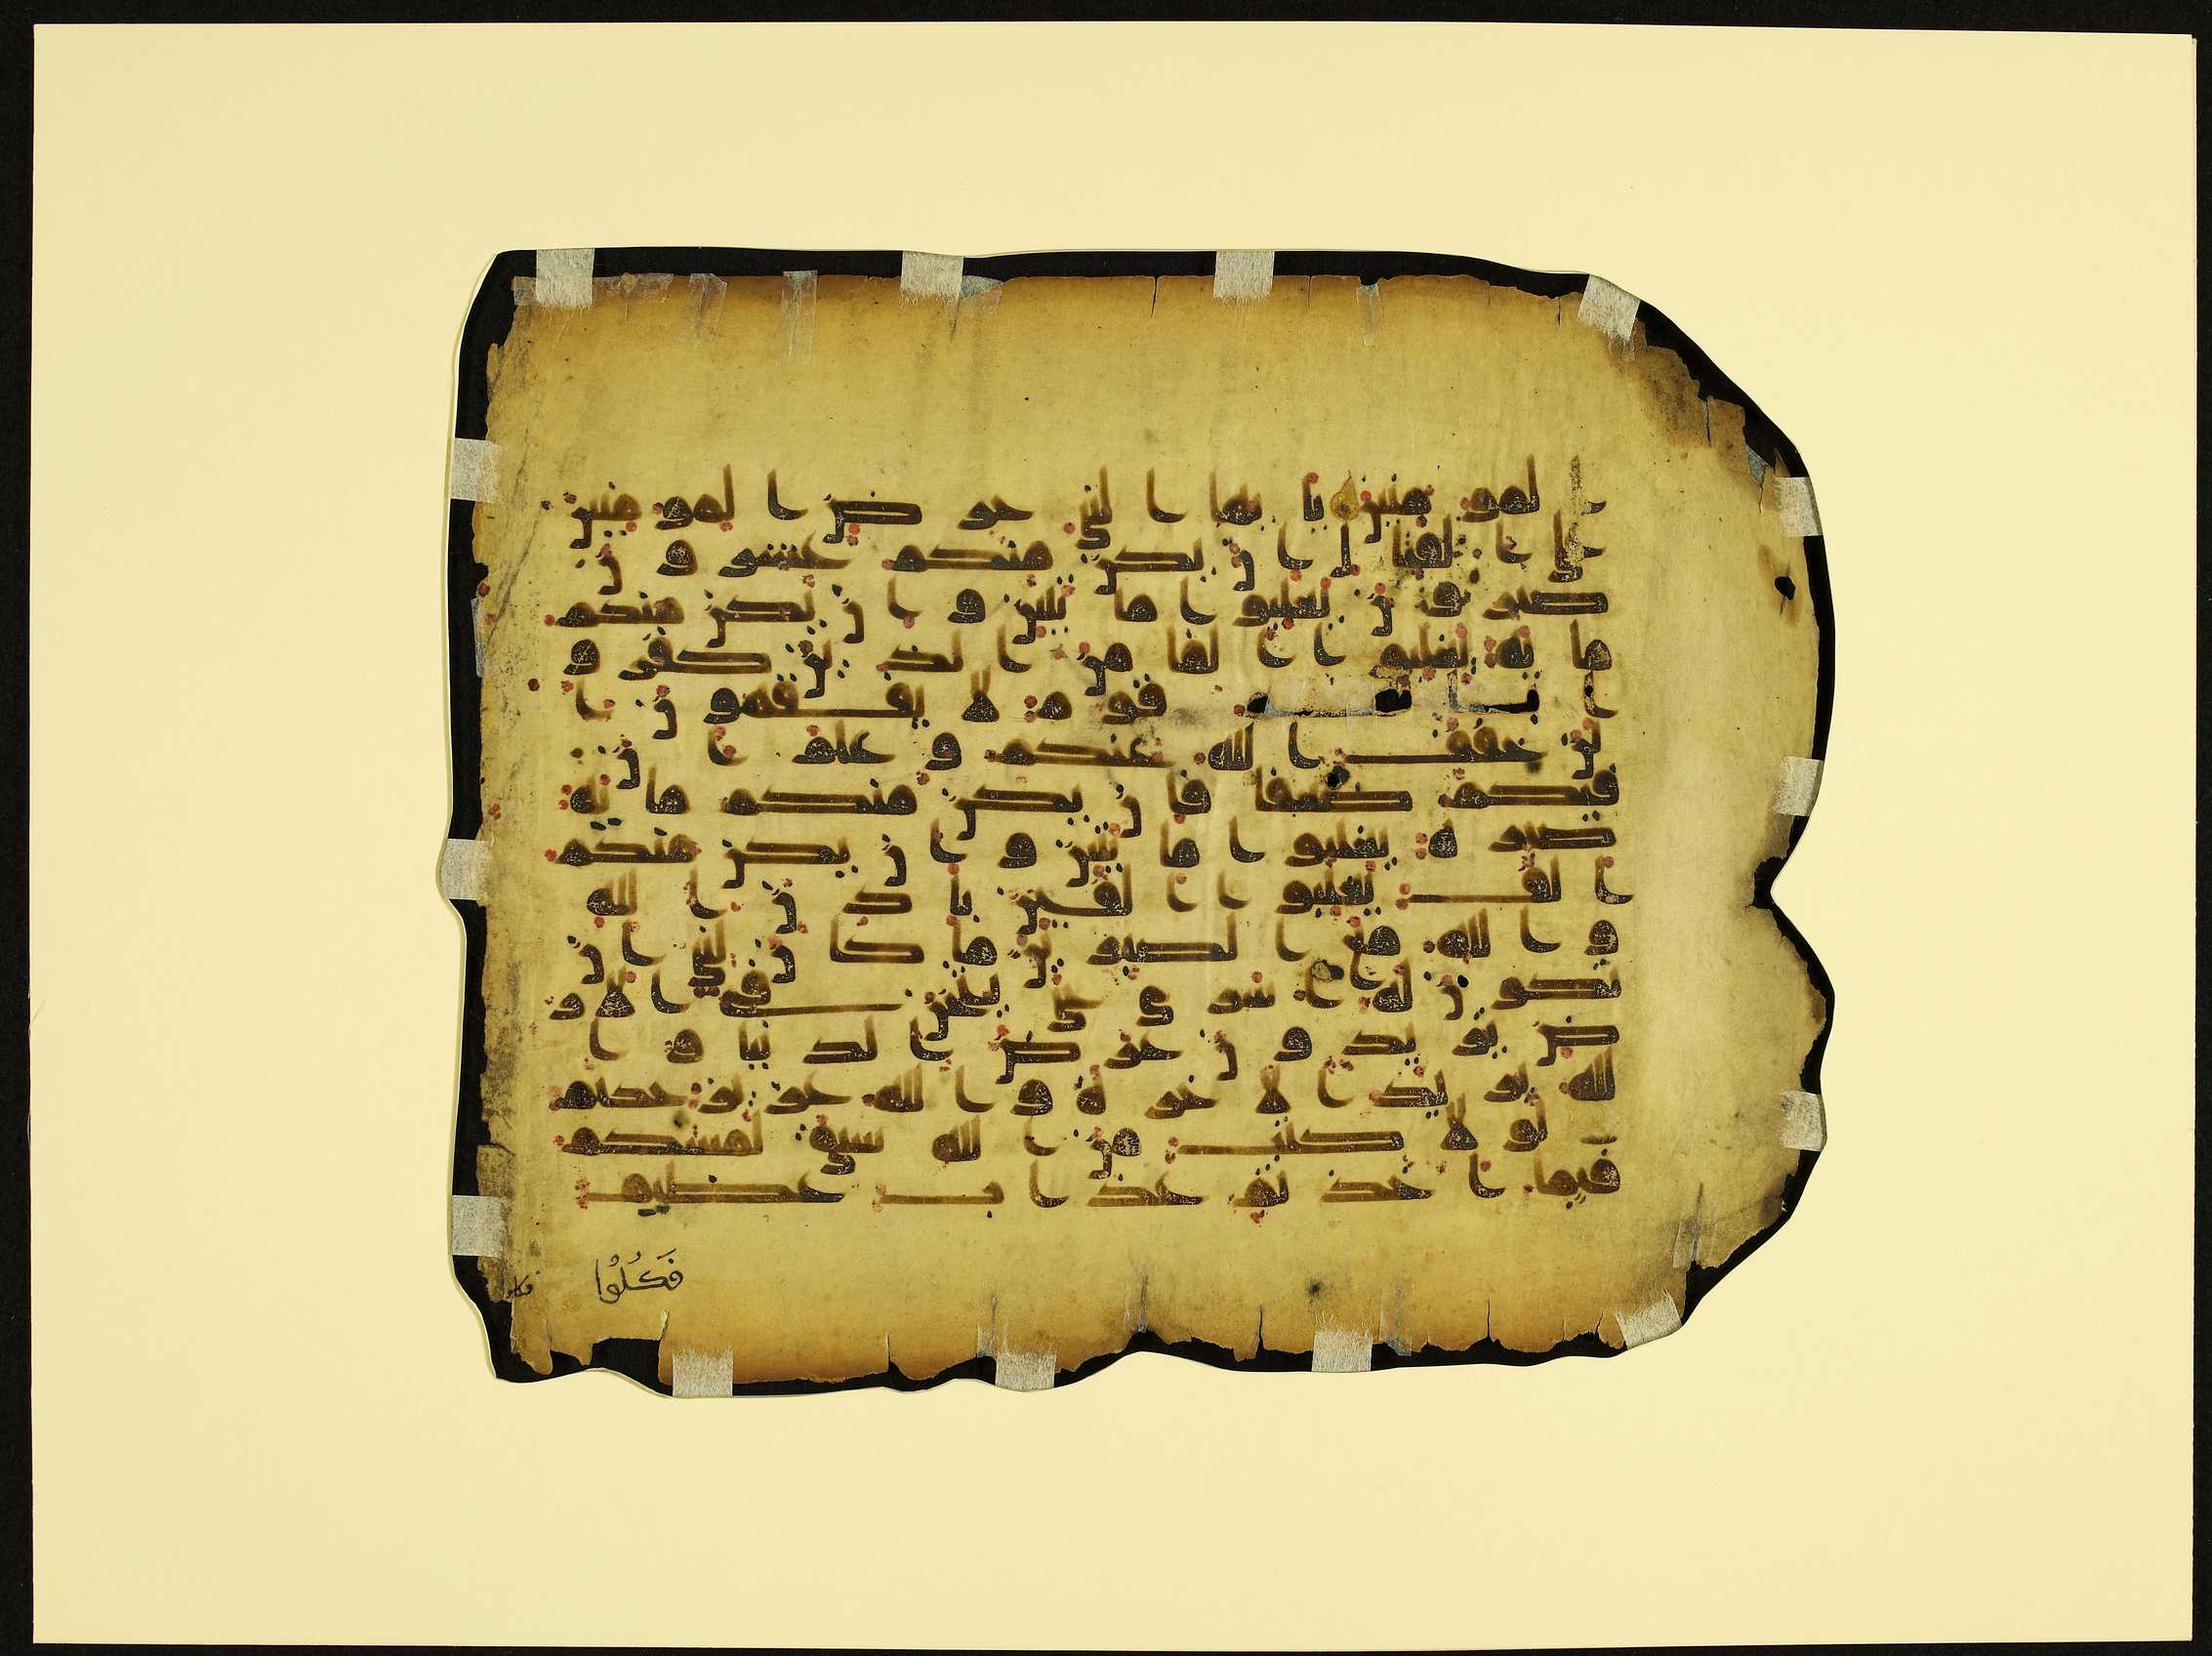 المومنين يايها النبى حرض المومنين
على القتال ان يكن منكم عشرون
صبرون يغلبوا مائتين وان يكن منكم
مائة يغلبوا الفا من الذين كفروا
قوم لا يفقهون ا
لن خفف الله عنكم وعلم ان
فيكم ضعفا فان يكن منكم مائة
صبرة يغلبوا مائتين وان يكن منكم
الف يغلبوا الفين باذن الله
والله مع الصبرين ما كان لنبى ان
تكون له اسرى حتى يثخن فى الار
ض تريدون عرض الدنيا وا
لله يريد الاخرة والله عزيز حكيم
لولا كتب من الله سبق لمسكم
فيما اخذتم عذاب عظيم
فَكُلُوْا
فكلوا